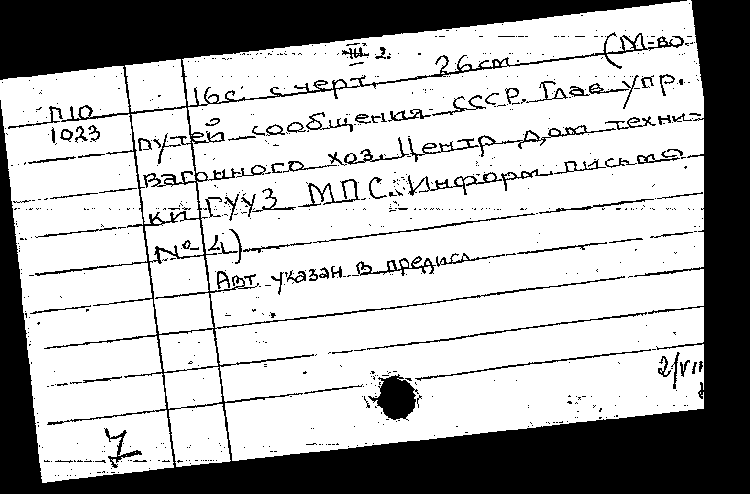 III 2.
16с. с черт. 26см. (М-во
П10
1023
путей сообщения СССР. Глав. упр.
вагонного хоз. Центр. дом техни-
ки ГУУЗ МПС. Информ. письмо
№ 4).
Авт. указан в предисл.
2/VII
7